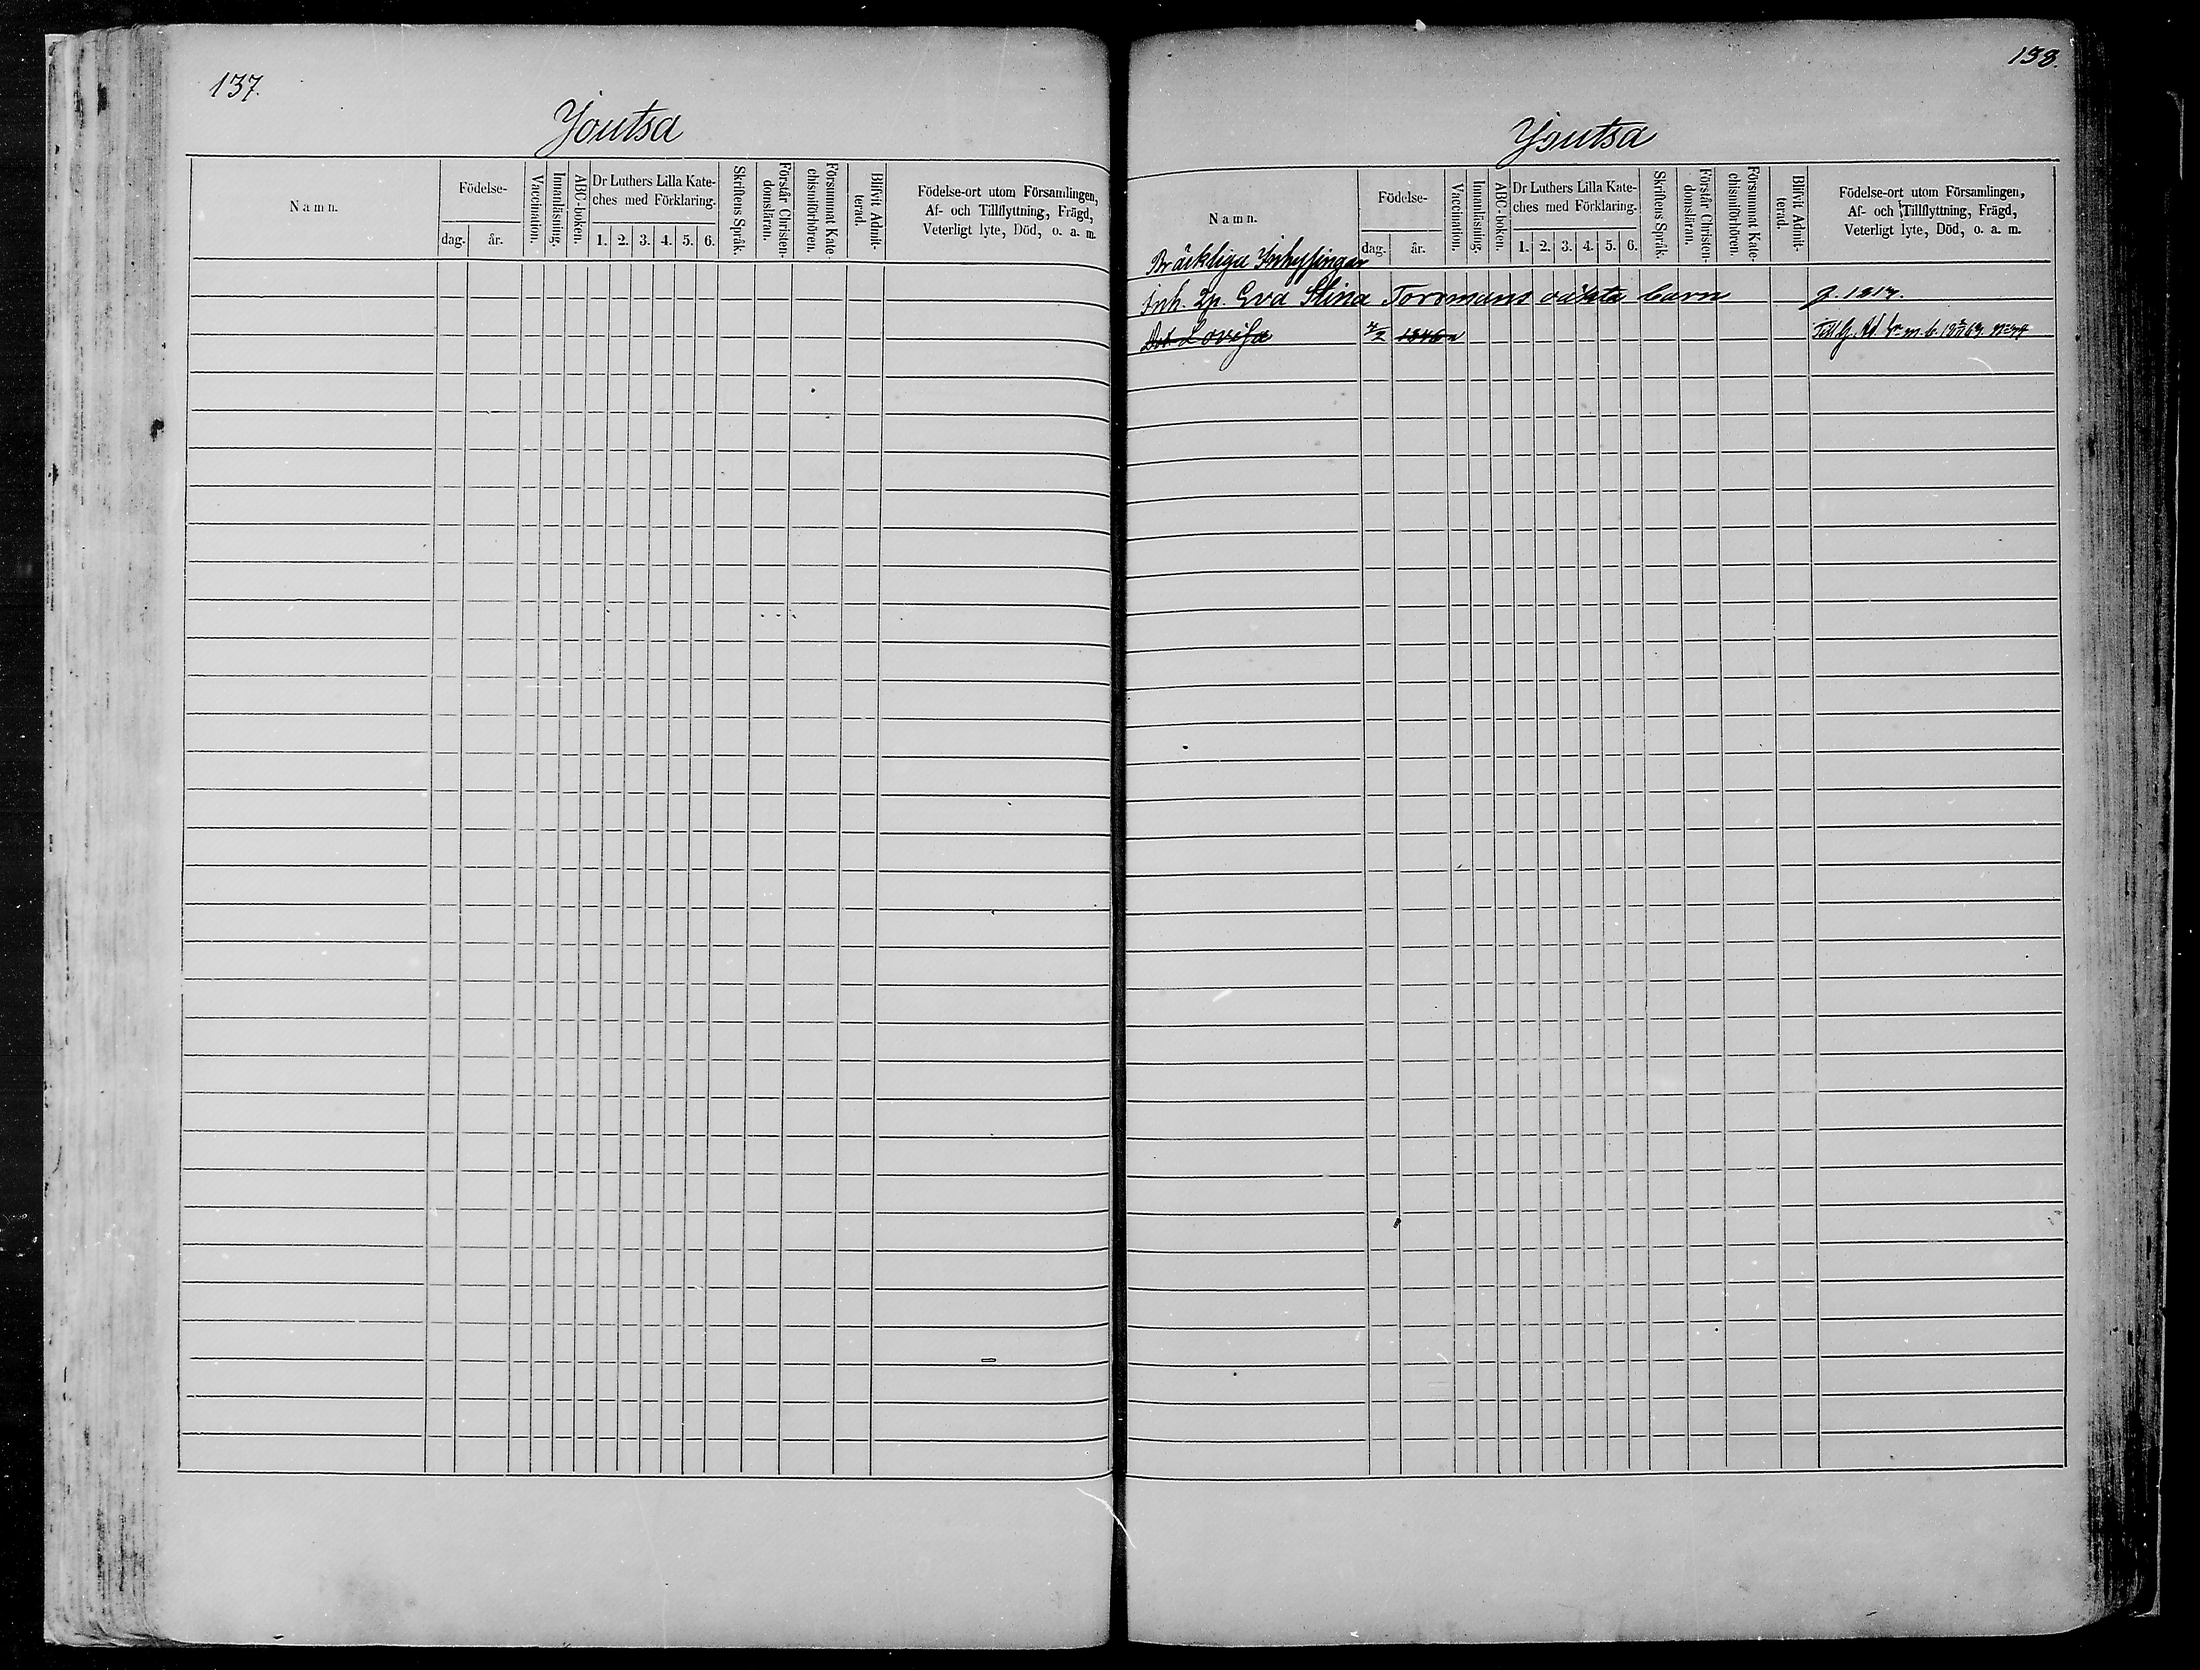 137.
Joutsa
Namn.
Födelse-
dag.
år.
Vaccination.
Innanläsning.
ABC-boken.
Dr Luthers Lilla Kate-
ches med Förklaring.
1. 2. 3. 4. 5. 6.
Skriftens Språk.
Förstår Christen-
domsläran.
Försummat Kate
chismiförhören.
Blifvit Admit-
terad.
Födelse-ort utom Församlingen,
Af- och Tillflyttning, Frägd,
Veterligt lyte, Död, o. a. m.
138.
Joutsa
Namn.
Födelse-
dag.
år.
Vaccination.
Innanläsning.
ABC-boken.
Dr Luthers Lilla Kate-
ches med Förklaring.
1. 2. 3. 4. 5. 6.
Skriftens Språk.
Förstår Christen-
domsläran.
Försummat Kate-
chismiförhören.
Blifvit Admit-
terad.
Födelse-ort utom Församlingen,
Af- och Tillflyttning, Frägd,
Veterligt lyte, Död, o. a. m.
Bräckliga Inhysingar
Inh. Eva Stina Torrmans oäkta barn
Dot. Lovisa 1846